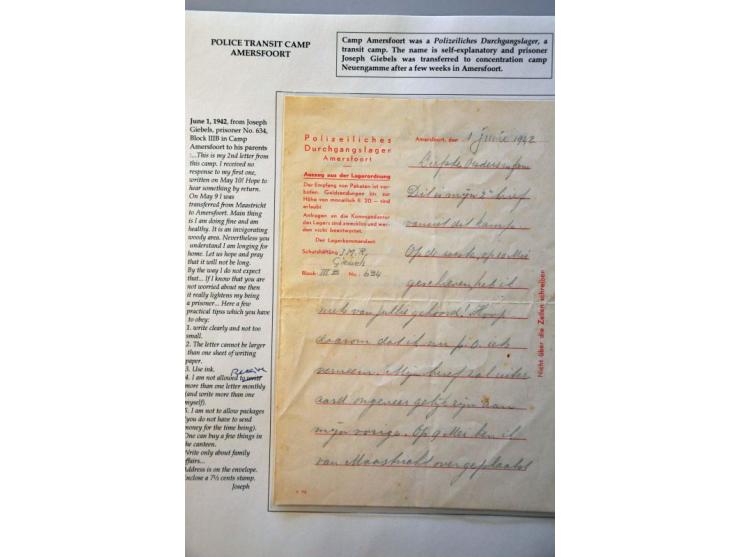 POLICE TRANSIT CAMP
AMERSFOORT
Camp Amersfoort was a Polizeiliches Durchgangslager, a
transit camp. The name is self-explanatory and prisoner
Joseph Giebels was transferred to concentration camp
Neuengamme after a few weeks in Amersfoort.
June 1, 1942, from Joseph
Giebels, prisoner No. 634,
Block IIIB in Camp
Amersfoort to his parents
:...This is my 2nd letter from
this camp. I received no
response to my first one,
written on May 10! Hope to
hear something by return.
On May 9 I was
transferred from Maastricht
to Amersfoort. Main thing
is I am doing fine and am
healthy. It is an invigorating
woody area. Nevertheless you
understand I am longing for
home. Let us hope and pray
that it will not be long.
By the way I do not expect
that... If I know that you are
not worried about me then
it really lightens my being
a prisoner... Here a few
practical tipss which you have
to obey:
1. write clearly and not too
small.
2. The letter cannot be larger
than one sheet of writing
paper.
3. Use ink.
4. I am not allowed to
more than one letter monthly
(and write more than one
myself).
5. I am not to allow packages
you do not have to send
money for the time being).
One can buy a few things in
the canteen.
Write only about family
ffairs...
Address is on the envelope.
nclose a 7½ cents stamp.
Joseph
Polizeiliches
Durchgangslager
Amersfoort
Auszug aus der Lagerordnung
Der Empfang von Paketen ist ver-
boten. Geldsendungen bis zur
Höhe von monatlich fl. 20.— sind
erlaubt.
Anfragen an die Kommandantur
des Lagers sind zwecklos und wer-
den nicht beantwortet.
Der Lagerkommandant
Schutzhäftling J.M.R.
Block: III B No.: 634
Amersfoort, den 1 Junie 1942
Dit is mijn 2e brief
vanuit dit kamp.
Op de eerste, op 10 Mei
geschreven heb ik
niets van jullie gehoord! Hoop
daarom dat ik nu p.o. iets
verneem. Mijn brief zal uiter
aard ongeveer gelijk zijn aan
mijn vorige. Op 9 Mei ben ik
van Maastricht overgeplaatst
Nicht über die Zeilen schreiben